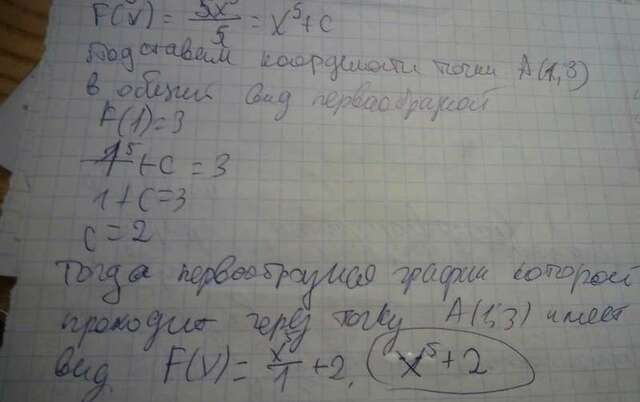 F(x) = 5x⁵/5 = x⁵+c
Подставим координаты точки A(1,3)
в общий вид первообразной
F(1)=3
1⁵+c=3
1+c=3
c=2
Тогда первообразная график которой
проходит через точку A(1,3) имеет
вид F(x)= x⁵/1 +2, x⁵+2